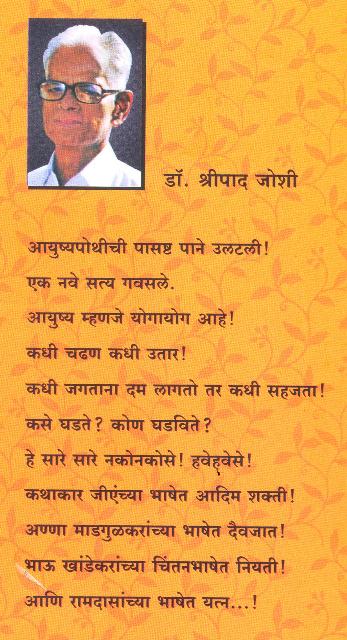 डॉ. श्रीपाद जोशी
आयुष्यपोथीची पासष्ट पाने उलटली!
एक नवे सत्य गवसले.
आयुष्य म्हणजे योगायोग आहे!
कधी चढण कधी उतार!
कधी जगताना दम लागतो तर कधी सहजता!
कसे घडते? कोण घडविते?
हे सारे सारे नकोनकोसे! हवेहवेसे!
कथाकार जीएंच्या भाषेत आदिम शक्ती!
अण्णा माडगुळकरांच्या भाषेत दैवजात!
भाऊ खांडेकरांच्या चिंतनभाषेत नियती!
आणि रामदासांच्या भाषेत यत्न...!